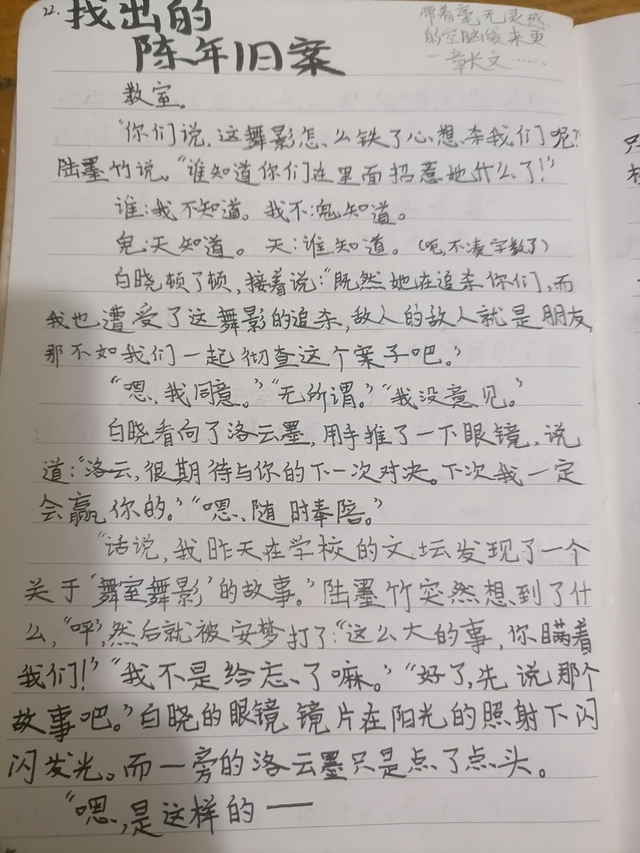 22. 找出的
陈年旧案
带着毫无灵感
的空脑袋来更
一章长文……
教室。
“你们说,这舞影怎么铁了心想杀我们呢?”
陆墨竹说。“谁知道你们在里面招惹她什么了!”
谁:我不知道。我不:鬼知道。
鬼:天知道。天:谁知道。(呃,不凑字数了)
白晓顿了顿,接着说:“既然她在追杀你们,而
我也遭受了这舞影的追杀,敌人的敌人就是朋友,
那不如我们一起彻查这个案子吧。”
“嗯,我同意。”“无所谓。”“我没意见。”
白晓看向了洛云墨,用手推了一下眼镜,说
道:“洛云,很期待与你的下一次对决。下次我一定
会赢你的。”“嗯、随时奉陪。”
“话说,我昨天在学校的文坛发现了一个
关于‘舞室舞影’的故事。”陆墨竹突然想到了什
么,“呯”,然后就被安梦打了:“这么大的事,你瞒着
我们!”“我不是给忘了嘛。”“好了,先说那个
故事吧。”白晓的眼镜镜片在阳光的照射下闪
闪发光。而一旁的洛云墨只是点了点头。
“嗯,是这样的——